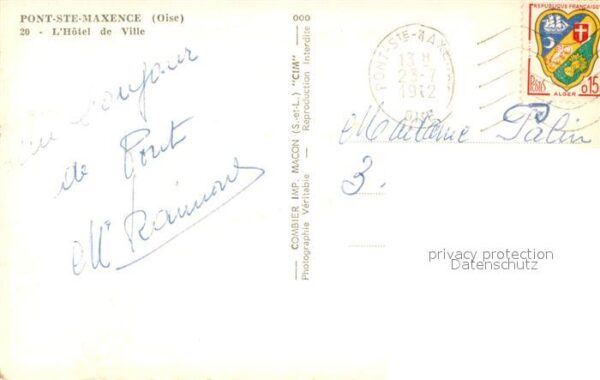 PONT-STE-MAXENCE (Oise)
20 - L'Hôtel de Ville
un bonjour
de Pont
Mt Raimond
COMBIER IMP. MACON (S.-et-L.) "CIM"
Photographie Véritable - Reproduction Interdite
PONT-STE-MAXENCE
13 H
23-7
OISE
REPUBLIQUE FRANÇAISE
POSTES
0,15
ALGER
Madame Palin
3.
privacy protection
Datenschutz